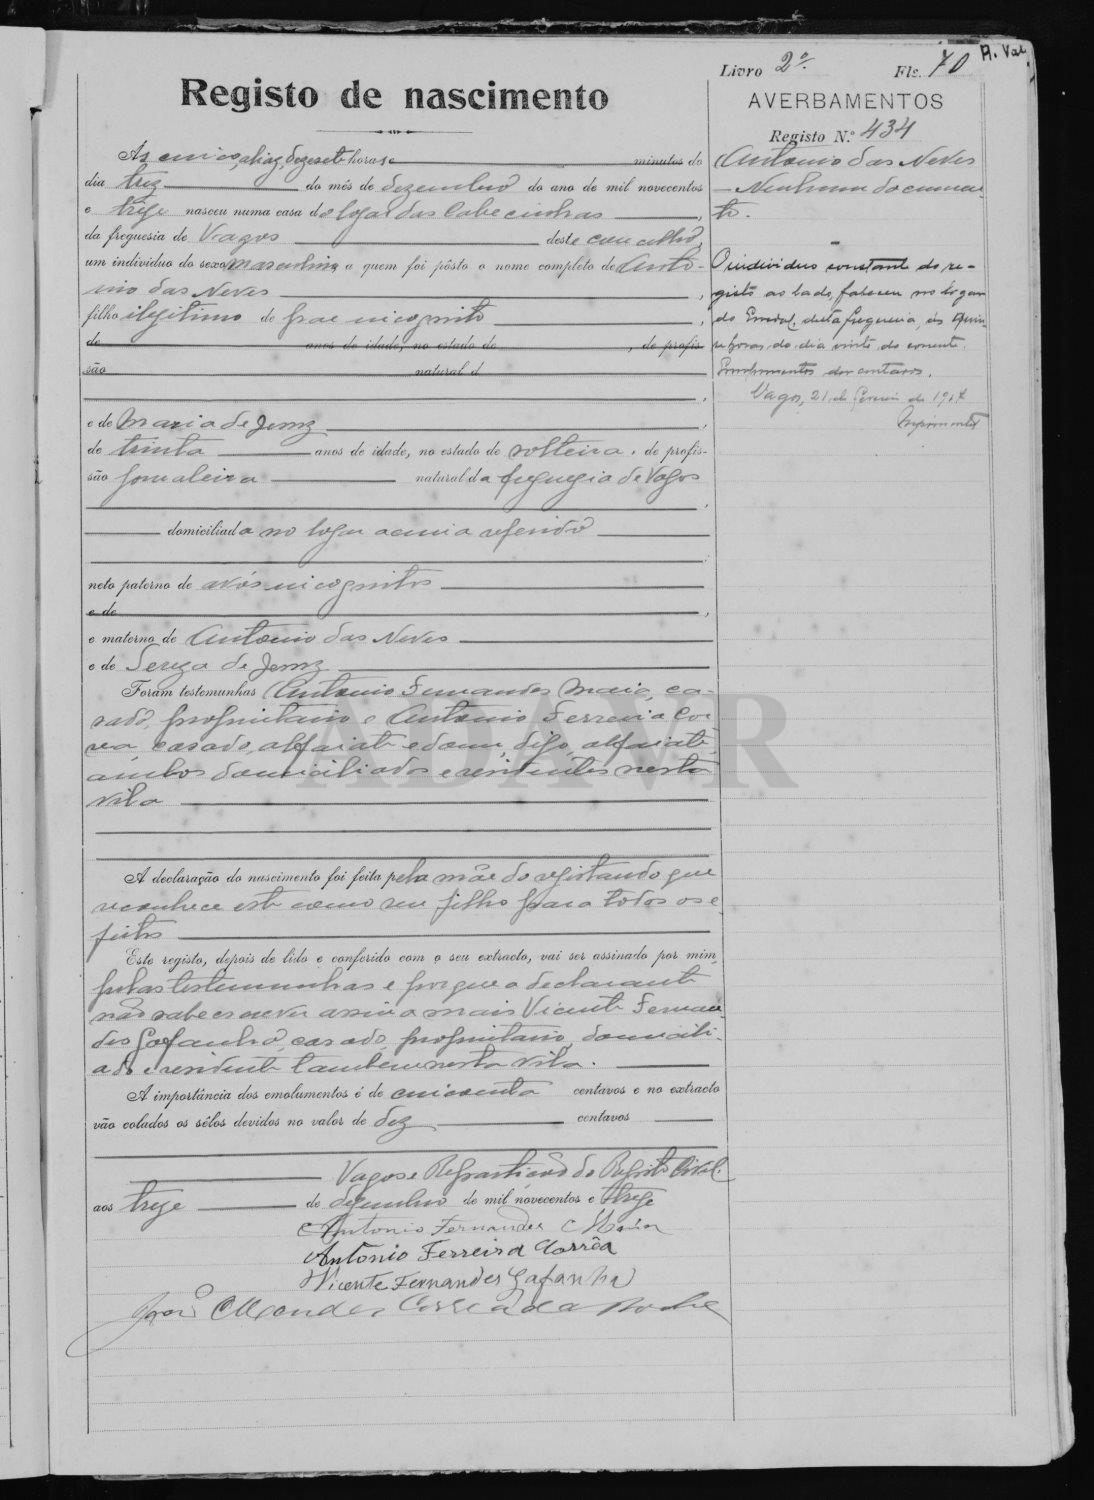 R. Val
Livro 2º Fls. 70
Registo de nascimento
AVERBAMENTOS
Registo N.º 434
Antonio das Neves
— Nenhum documen-
to.
O individuo constante do re-
gisto ao lado, faleceu no logar
do desta freguesia, ás
horas do dia vinte do corrente.
Emolumentos centavos.
Vagos, 21 de de 19
Ás cinco, aliaz, dezesete horas e minutos do
dia trez do mês de dezembro do ano de mil novecentos
e treze nasceu numa casa do logar das Cabecinhas,
da freguesia de Vagos deste concelho,
um individuo do sexo masculino a quem foi pôsto o nome completo de Anto-
nio das Neves,
filho ilegitimo de pae incognito,
de anos de idade, no estado de , de profis-
são natural d
e de Maria de Jesus,
de trinta anos de idade, no estado de solteira, de profis-
são jornaleira natural da freguezia de Vagos
domiciliada no logar acima referido
neto paterno de avós incognitos
e de ,
e materno de Antonio das Neves
e de Tereza de Jesus
Foram testemunhas Antonio Fernandes Maia, ca-
sado, proprietario e Antonio Ferreira Cor-
rea, casado, alfaiate e dom, digo, alfaiate,
ambos domiciliados e residentes nesta
vila
A declaração do nascimento foi feita pela mãe do registando que
reconhece este como seu filho para todos os e-
feitos
Este registo, depois de lido e conferido com o seu extracto, vai ser assinado por mim,
pelas testemunhas e porque a declarante
não sabe escrever assina mais Vicente Fernan-
des Gafanha, casado, proprietario, domicili-
ado e residente tambem nesta vila.
A importância dos emolumentos é de cincoenta centavos e no extracto
vão colados os sêlos devidos no valor de dez centavos
Vagos e Repartição do Registo Civil,
aos treze de dezembro de mil novecentos e treze
Antonio Fernandes Maia
Antonio Ferreira Corrêa
Vicente Fernandes Gafanha
Mendes Correia da Rocha
ADAVR